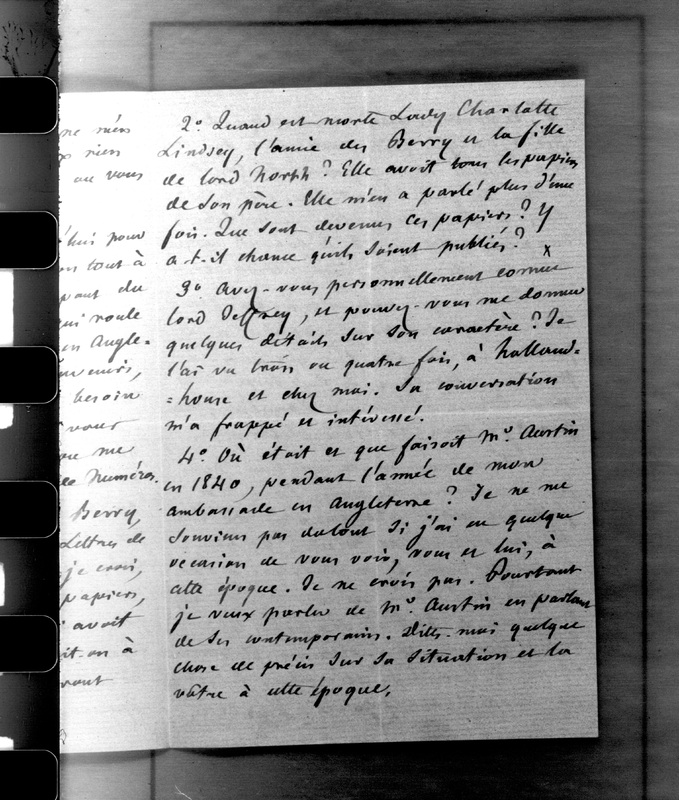 ne m'en
rien
ou vous
d'hui pour
en tout à
part du
qui roule
en Angle-
souvenirs,
besoin
vous
ou me
de Numéros.
Berry,
Lettres de
je crois,
papiers,
avoit
it-on à
ront
2º Quand est morte Lady Charlotte
Lindsey, l'amie des Berry et la fille
de lord North ? Elle avoit tous les papiers
de son père. Elle m'en a parlé plus d'une
fois. Que sont devenus ces papiers ? Y
a-t-il chance qu'ils soient publiés ?
x
3º Avez-vous personnellement connu
lord Jeffrey, et pouvez-vous me donner
quelques détails sur son caractère ? Je
l'ai vu trois ou quatre fois, à Holland-
=house et chez moi. Sa conversation
m'a frappé et intéressé.
4º Où était et que faisoit Mr. Austin
en 1840, pendant l'année de mon
ambassade en Angleterre ? Je ne me
souviens pas du tout si j'ai eu quelque
occasion de vous voir, vous et lui, à
cette époque. Je ne crois pas. Pourtant
je veux parler de Mr. Austin en parlant
de ses contemporains. Dites-moi quelque
chose de précis sur sa situation et la
vôtre à cette époque.